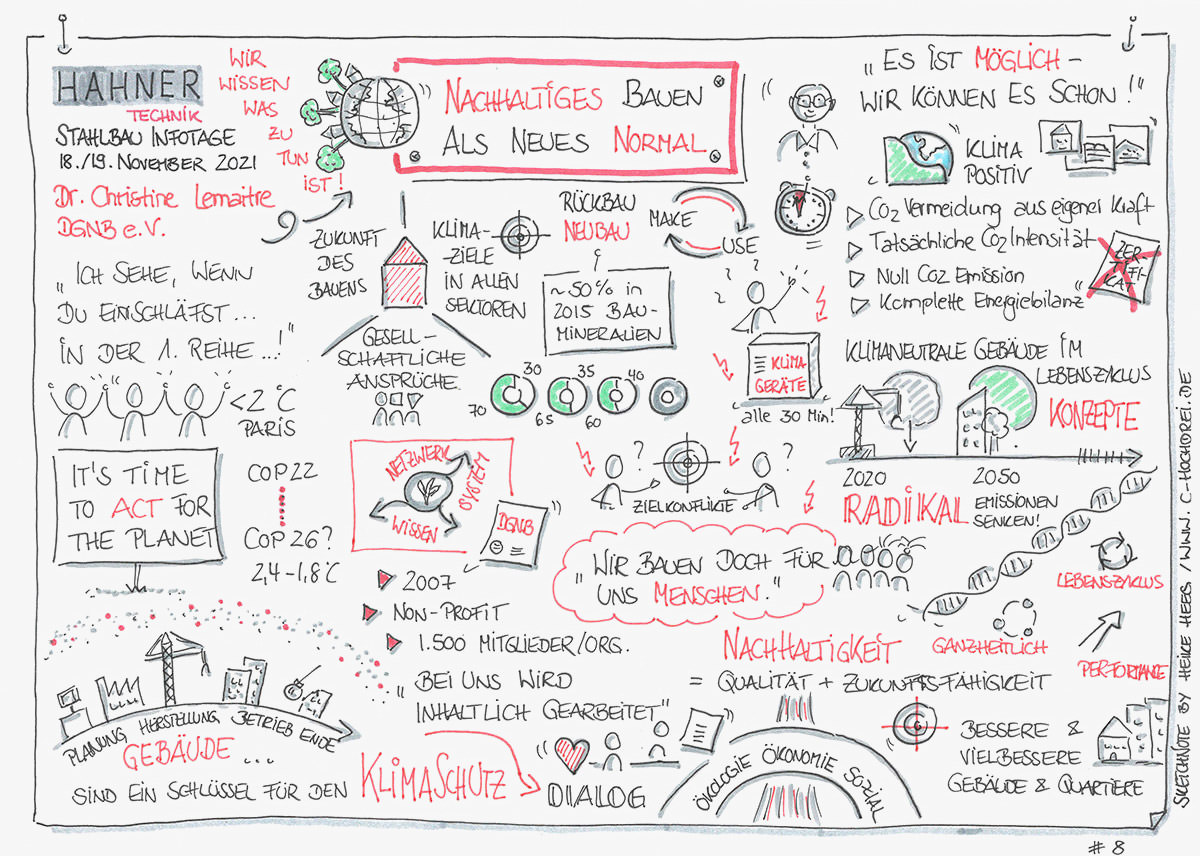 HAHNER
TECHNIK
STAHLBAU INFOTAGE
18./19. NOVEMBER 2021
Dr. Christine Lemaitre
DGNB e.V.
WIR
WISSEN
WAS
ZU
TUN
IST!
NACHHALTIGES BAUEN
ALS NEUES NORMAL
„ES IST MÖGLICH –
WIR KÖNNEN ES SCHON!"
KLIMA
POSITIV
CO2 Vermeidung aus eigener Kraft
Tatsächliche CO2 Intensität
Null CO2 Emission
Komplette Energiebilanz
ZER-
TIFI-
KAT
„ICH SEHE, WENN
DU EINSCHLÄFST...
IN DER 1. REIHE...!"
<2°C
PARIS
ZUKUNFT
DES
BAUENS
KLIMA-
ZIELE
IN ALLEN
SEKTOREN
GESELL-
SCHAFTLICHE
ANSPRÜCHE.
RÜCKBAU
NEUBAU
MAKE
USE
~50% in
2015 BAU-
MINERALIEN
30
70
35
65
40
60
KLIMA
GERÄTE
alle 30 Min!
KLIMANEUTRALE GEBÄUDE IM
LEBENSZYKLUS
KONZEPTE
2020
2050
RADIKAL
EMISSIONEN
SENKEN!
IT'S TIME
TO ACT FOR
THE PLANET
COP22
COP26?
2,4–1,8°C
NETZWERK
SYSTEM
WISSEN
DGNB
2007
NON-PROFIT
1.500 MITGLIEDER/ORG.
?
?
ZIELKONFLIKTE
„WIR BAUEN DOCH FÜR
UNS MENSCHEN."
LEBENSZYKLUS
GANZHEITLICH
PERFORMANCE
PLANUNG HERSTELLUNG BETRIEB ENDE
GEBÄUDE ...
SIND EIN SCHLÜSSEL FÜR DEN
KLIMASCHUTZ
„BEI UNS WIRD
INHALTLICH GEARBEITET"
DIALOG
NACHHALTIGKEIT
= QUALITÄT + ZUKUNFTSFÄHIGKEIT
ÖKOLOGIE ÖKONOMIE SOZIAL
BESSERE &
VIELBESSERE
GEBÄUDE & QUARTIERE
SKETCHNOTE BY HEIKE HEEG / WWW.C-HOCHDREI.DE
#8